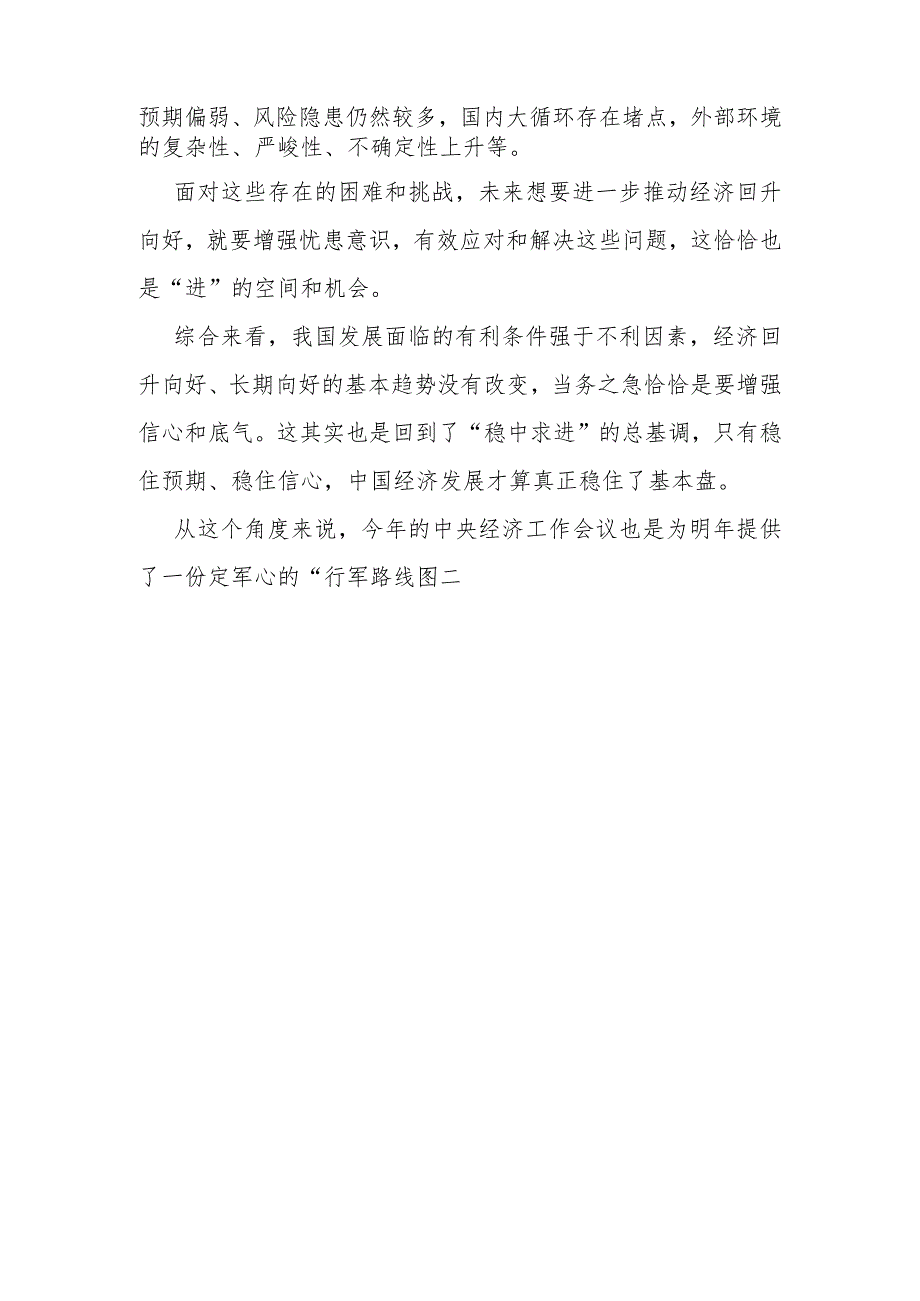 预期偏弱、风险隐患仍然较多，国内大循环存在堵点，外部环境
的复杂性、严峻性、不确定性上升等。
面对这些存在的困难和挑战，未来想要进一步推动经济回升
向好，就要增强忧患意识，有效应对和解决这些问题，这恰恰也
是“进”的空间和机会。
综合来看，我国发展面临的有利条件强于不利因素，经济回
升向好、长期向好的基本趋势没有改变，当务之急恰恰是要增强
信心和底气。这其实也是回到了“稳中求进”的总基调，只有稳
住预期、稳住信心，中国经济发展才算真正稳住了基本盘。
从这个角度来说，今年的中央经济工作会议也是为明年提供
了一份定军心的“行军路线图二